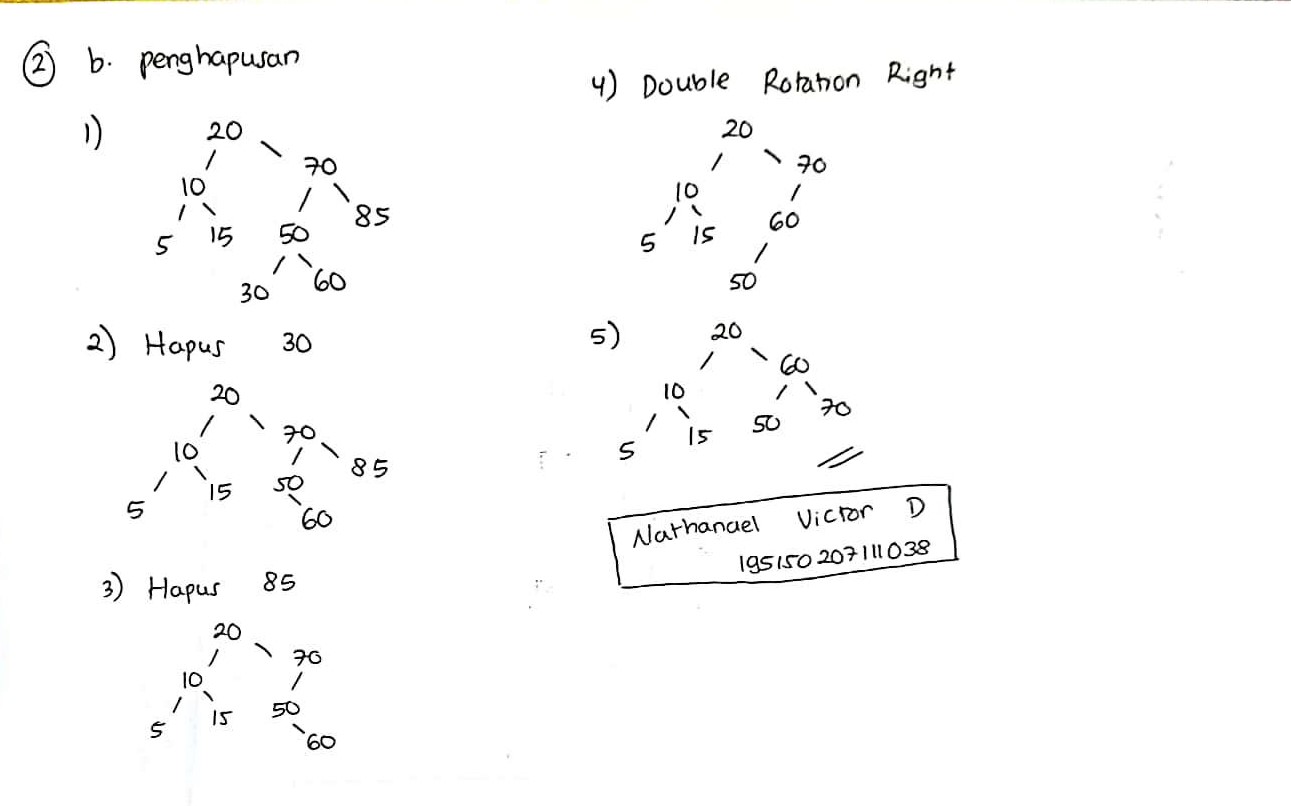 ② b. penghapusan
1)
20
70
10
85
5 15 50
30 60
2) Hapus 30
20
70
10
85
5 15 50
60
3) Hapus 85
20
70
10
5 15 50
60
4) Double Rotation Right
20
70
10
60
5 15
50
5)
20
60
10
70
5 15 50
Nathanael Victor D
195150207111038